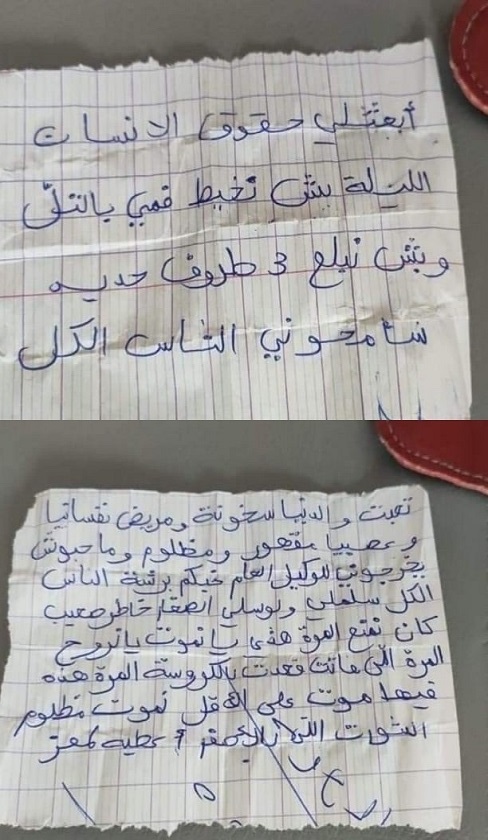 أبعثلي حقوق الانسان
الليلة بش نخيط فمي بالتلّ
وبش نبلع 3 طروف حديد
سامحوني الناس الكل
تعبت والدنيا سخونة ومريض نفسانيا
وعصبيا مقهور ومظلوم وماحبوش
يخرجوني للوكيل العام نحبكم برشة الناس
الكل سلملي وبوسلي الصغار خاطر صعيب
كان نمنع المرة هذي يا نموت يا نروح
المرة اللي فاتت قعدت بالكروسة المرة هذه
فيها موت على الاقل نموت مظلوم
الشورت اللي أعطيه لمعز